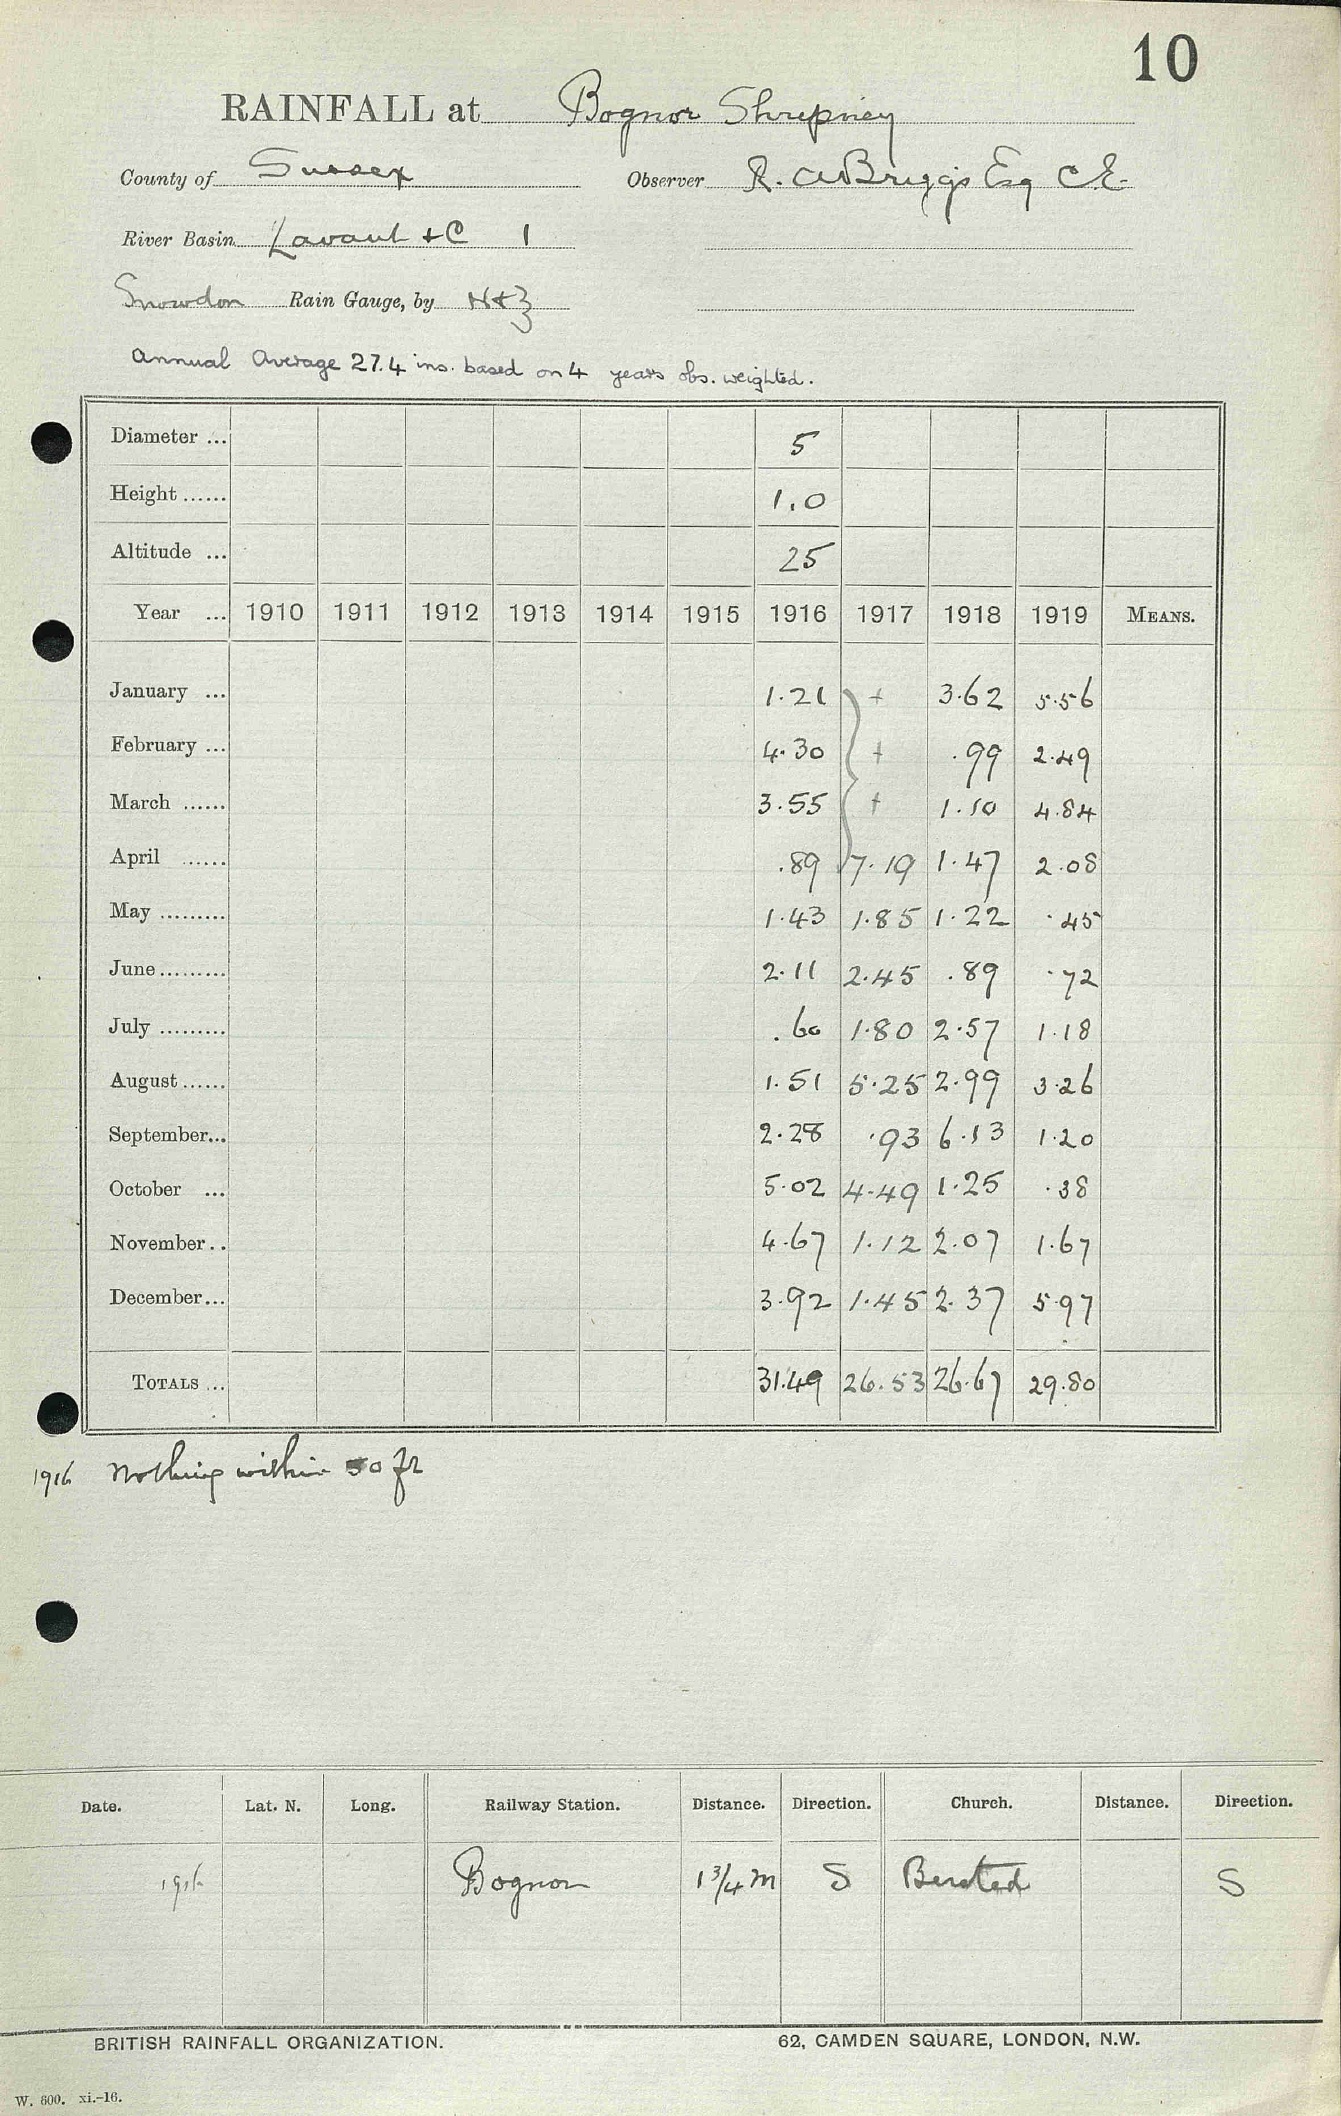 10
RAINFALL at Bognor Shripney
County of Sussex Observer R. A Briggs Esq C.E.
River Basin Lavant + C 1
Snowdon Rain Gauge, by N+Z
Annual Average 27.4 ins. based on 4 years obs. weighted.
Diameter ... 5
Height ...... 1.0
Altitude ... 25
Year ... 1910 1911 1912 1913 1914 1915 1916 1917 1918 1919 MEANS.
January ... 1.21 + 3.62 5.56
February ... 4.30 + .99 2.49
March ...... 3.55 + 1.10 4.84
April ...... .89 7.19 1.47 2.08
May ......... 1.43 1.85 1.22 .45
June ......... 2.11 2.45 .89 .72
July ......... .60 1.80 2.57 1.18
August ...... 1.51 5.25 2.99 3.26
September... 2.28 .93 6.13 1.20
October ... 5.02 4.49 1.25 .38
November .. 4.67 1.12 2.07 1.67
December... 3.92 1.45 2.37 5.97
TOTALS ... 31.49 26.53 26.67 29.80
1916 Nothing within 50 ft
Date. Lat. N. Long. Railway Station. Distance. Direction. Church. Distance. Direction.
1916 Bognor 1 3/4 m S Bersted S
BRITISH RAINFALL ORGANIZATION. 62, CAMDEN SQUARE, LONDON, N.W.
W. 600. xi.-16.